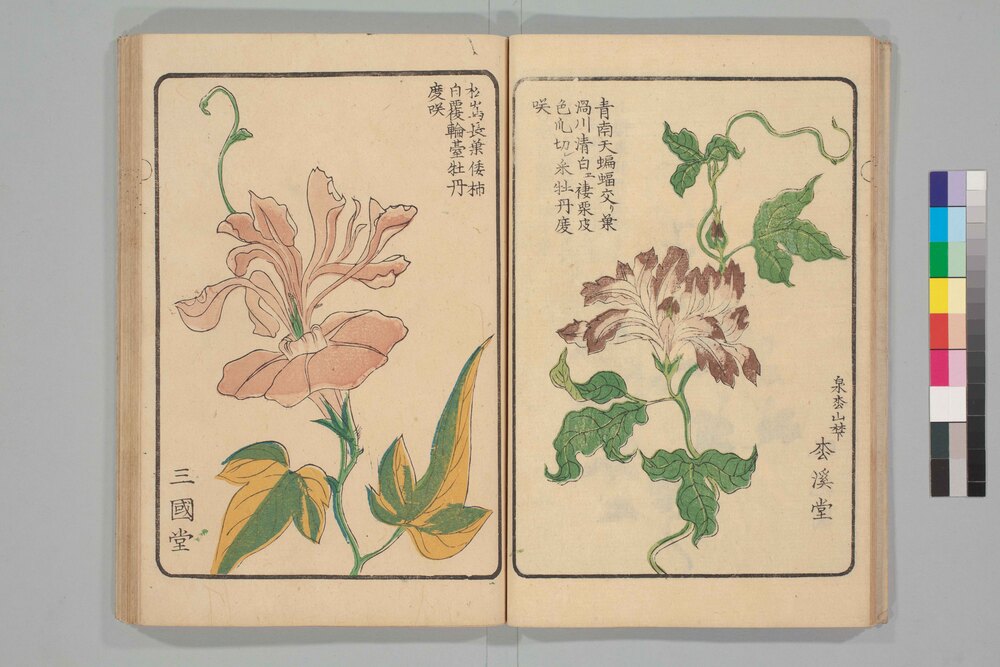 青南天蝙蝠交リ葉
渦川清白ニ褄栗皮
色爪切レ采牡丹度
咲
泉㭐山梺
㭐溪堂
松島長葉倭柿
白覆輪臺牡丹
度咲
三國堂